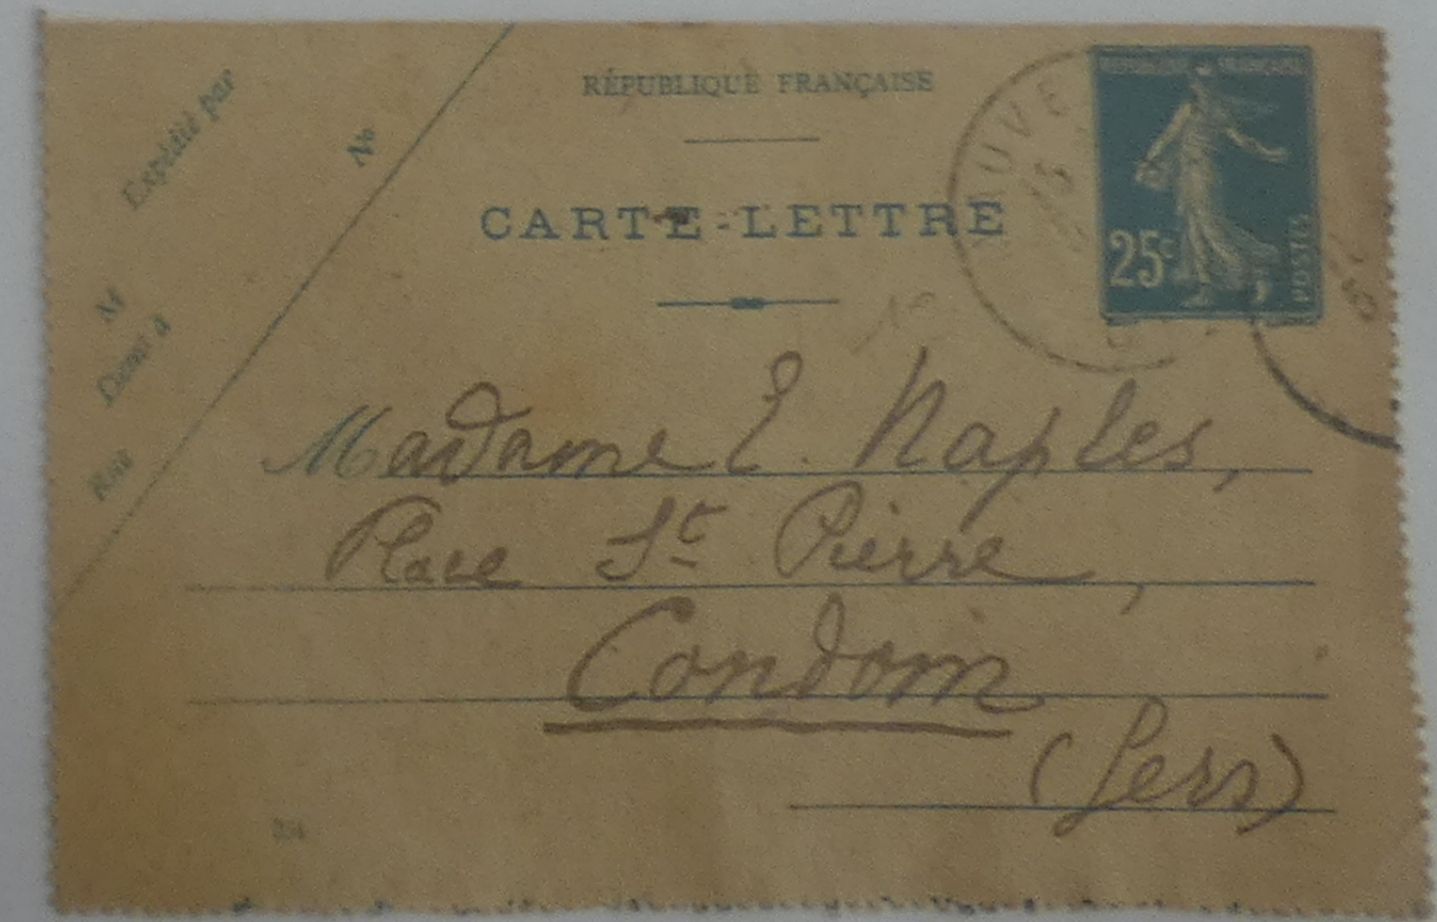 Expédié par
No
RÉPUBLIQUE FRANÇAISE
CARTE-LETTRE
RÉPUBLIQUE FRANÇAISE
25c
POSTES
M
Rue
Madame E. Naples,
Place St Pierre,
Condom
(Gers)